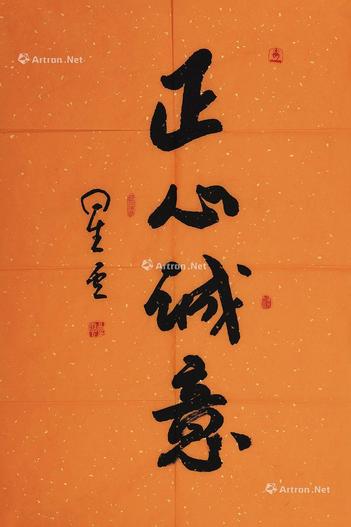 正心誠意
星雲
Artron.Net
Artron.Net
Artron.Net